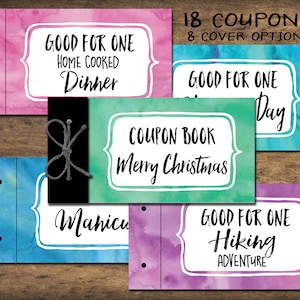 18 COUPON
& 8 COVER OPTION
GOOD FOR ONE
HOME COOKED
Dinner
GOOD FOR ONE
Day
COUPON BOOK
Merry Christmas
Manicu
GOOD FOR ONE
Hiking
ADVENTURE